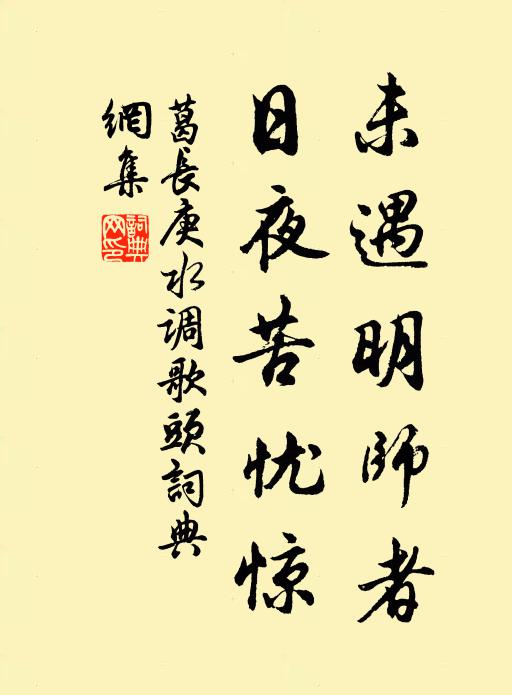 未遇明師者
日夜苦忧惊
葛長庚水调歌頭詞典
網集
詞典
网印